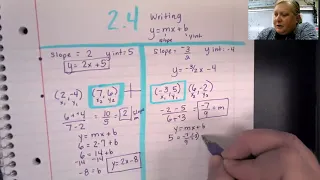 2.4
Writing
y=mx+b
slope
yint
slope = 2 yint: 5
y = 2x+5
slope = -3/2 yint: -4
y = -3/2x - 4
(2,-4) (7,6)
x₁ y₁ x₂ y₂
6+4 = 10 = 2
7-2 5
y = mx + b
6 = 2·7 + b
6 = 14 + b
-14 -14
-8 = b
y = 2x-8
(-3,5) (6,-2)
x₁ y₁ x₂ y₂
-2-5 = -7 = m
6+3 9
y = mx + b